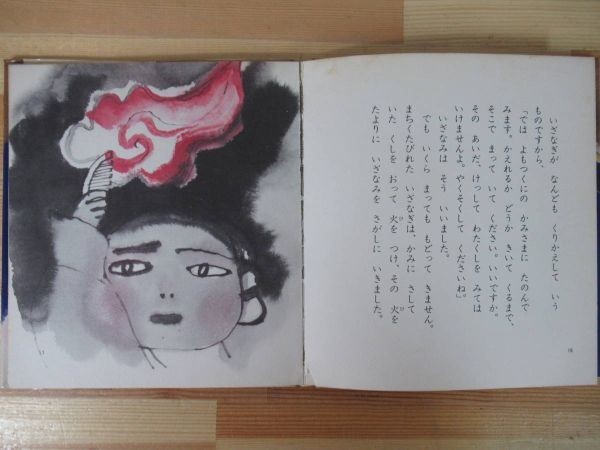 いざなぎが なんども くりかえして いう
ものですから、
「では よもつくにの かみさまに たのんで
みます。かえれるか どうか きいて くるまで、
そこで まって いて ください。いいですか。
その あいだ、けっして わたくしを みては
いけませんよ。やくそくして くださいね」
いざなみは そう いいました。
でも いくら まっても もどって きません。
まちくたびれた いざなぎは、かみに さして
いた くしを おって 火を つけ、その 火を
たよりに いざなみを さがしに いきました。